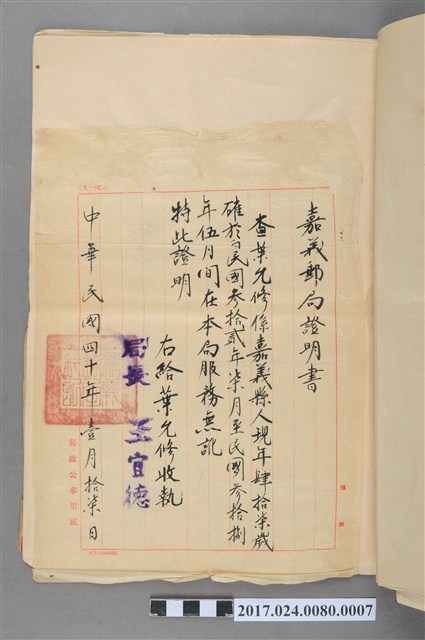 嘉義郵局證明書
查葉允修係嘉義縣人現年肆拾柒歲
確於民國叁拾貳年柒月至民國叁拾捌
年伍月間在本局服務無訛
特此證明
右給葉允修收執
局長 王宜德
中華民國四十年壹月拾柒日
郵政公事用紙
2017.024.0080.0007